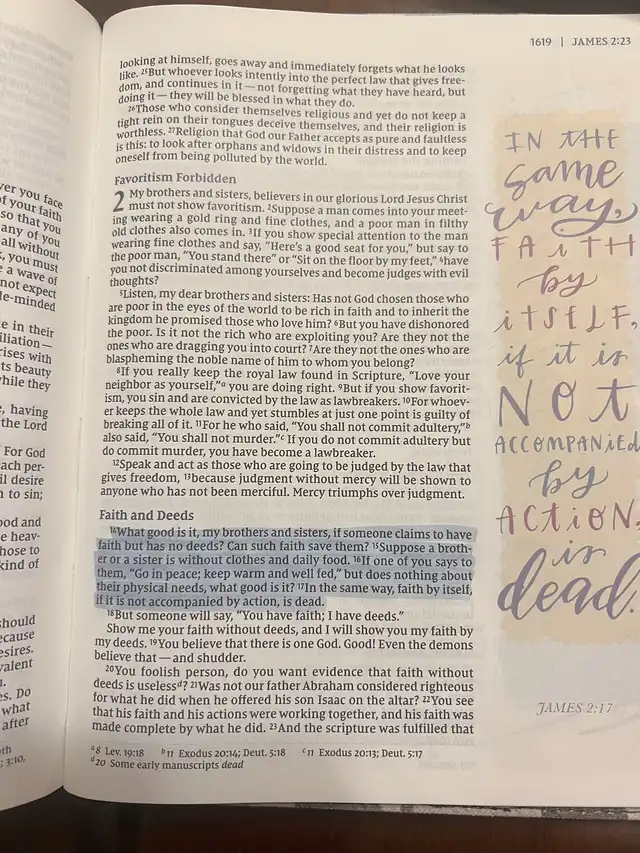 ver you face
of your faith
so that you
any of you
all without
, you must
e a wave of
not expect
le-minded
e in their
iliation—
rises with
ts beauty
while they
e, having
the Lord
For God
ach per-
il desire
n to sin;
ood and
e heav-
hose to
kind of
should
ecause
esires.
valent
.
s. Do
what
after
oth
; 3:10,
1619 | JAMES 2:23
looking at himself, goes away and immediately forgets what he looks
like. 25But whoever looks intently into the perfect law that gives free-
dom, and continues in it—not forgetting what they have heard, but
doing it—they will be blessed in what they do.
26Those who consider themselves religious and yet do not keep a
tight rein on their tongues deceive themselves, and their religion is
worthless. 27Religion that God our Father accepts as pure and faultless
is this: to look after orphans and widows in their distress and to keep
oneself from being polluted by the world.
Favoritism Forbidden
2 My brothers and sisters, believers in our glorious Lord Jesus Christ
must not show favoritism. 2Suppose a man comes into your meet-
ing wearing a gold ring and fine clothes, and a poor man in filthy
old clothes also comes in. 3If you show special attention to the man
wearing fine clothes and say, "Here's a good seat for you," but say to
the poor man, "You stand there" or "Sit on the floor by my feet," 4have
you not discriminated among yourselves and become judges with evil
thoughts?
5Listen, my dear brothers and sisters: Has not God chosen those who
are poor in the eyes of the world to be rich in faith and to inherit the
kingdom he promised those who love him? 6But you have dishonored
the poor. Is it not the rich who are exploiting you? Are they not the
ones who are dragging you into court? 7Are they not the ones who are
blaspheming the noble name of him to whom you belong?
8If you really keep the royal law found in Scripture, "Love your
neighbor as yourself,"a you are doing right. 9But if you show favorit-
ism, you sin and are convicted by the law as lawbreakers. 10For whoev-
er keeps the whole law and yet stumbles at just one point is guilty of
breaking all of it. 11For he who said, "You shall not commit adultery,"b
also said, "You shall not murder."c If you do not commit adultery but
do commit murder, you have become a lawbreaker.
12Speak and act as those who are going to be judged by the law that
gives freedom, 13because judgment without mercy will be shown to
anyone who has not been merciful. Mercy triumphs over judgment.
Faith and Deeds
14What good is it, my brothers and sisters, if someone claims to have
faith but has no deeds? Can such faith save them? 15Suppose a broth-
er or a sister is without clothes and daily food. 16If one of you says to
them, "Go in peace; keep warm and well fed," but does nothing about
their physical needs, what good is it? 17In the same way, faith by itself,
if it is not accompanied by action, is dead.
18But someone will say, "You have faith; I have deeds."
Show me your faith without deeds, and I will show you my faith by
my deeds. 19You believe that there is one God. Good! Even the demons
believe that—and shudder.
20You foolish person, do you want evidence that faith without
deeds is uselessd? 21Was not our father Abraham considered righteous
for what he did when he offered his son Isaac on the altar? 22You see
that his faith and his actions were working together, and his faith was
made complete by what he did. 23And the scripture was fulfilled that
a8 Lev. 19:18 b11 Exodus 20:14; Deut. 5:18 c11 Exodus 20:13; Deut. 5:17
d20 Some early manuscripts dead
IN THE
same
way,
FAiTH
by
iTSELF,
if it is
NOT
ACCOMPANiED
by
ACTiON,
is
dead.
JAMES 2:17